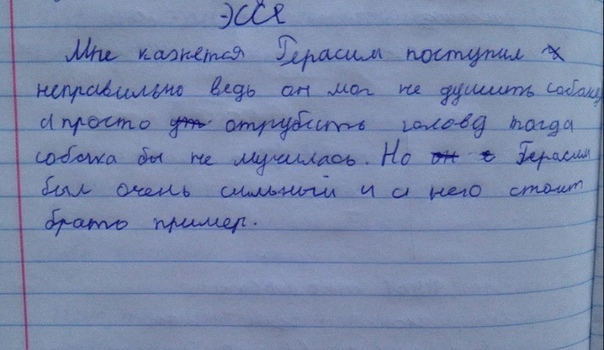 эссе
Мне кажется Герасим поступил
неправильно ведь он мог не душить собаку
а просто отрубить голову тогда
собака бы не мучилась. Но Герасим
был очень сильный и с него стоит
брать пример.